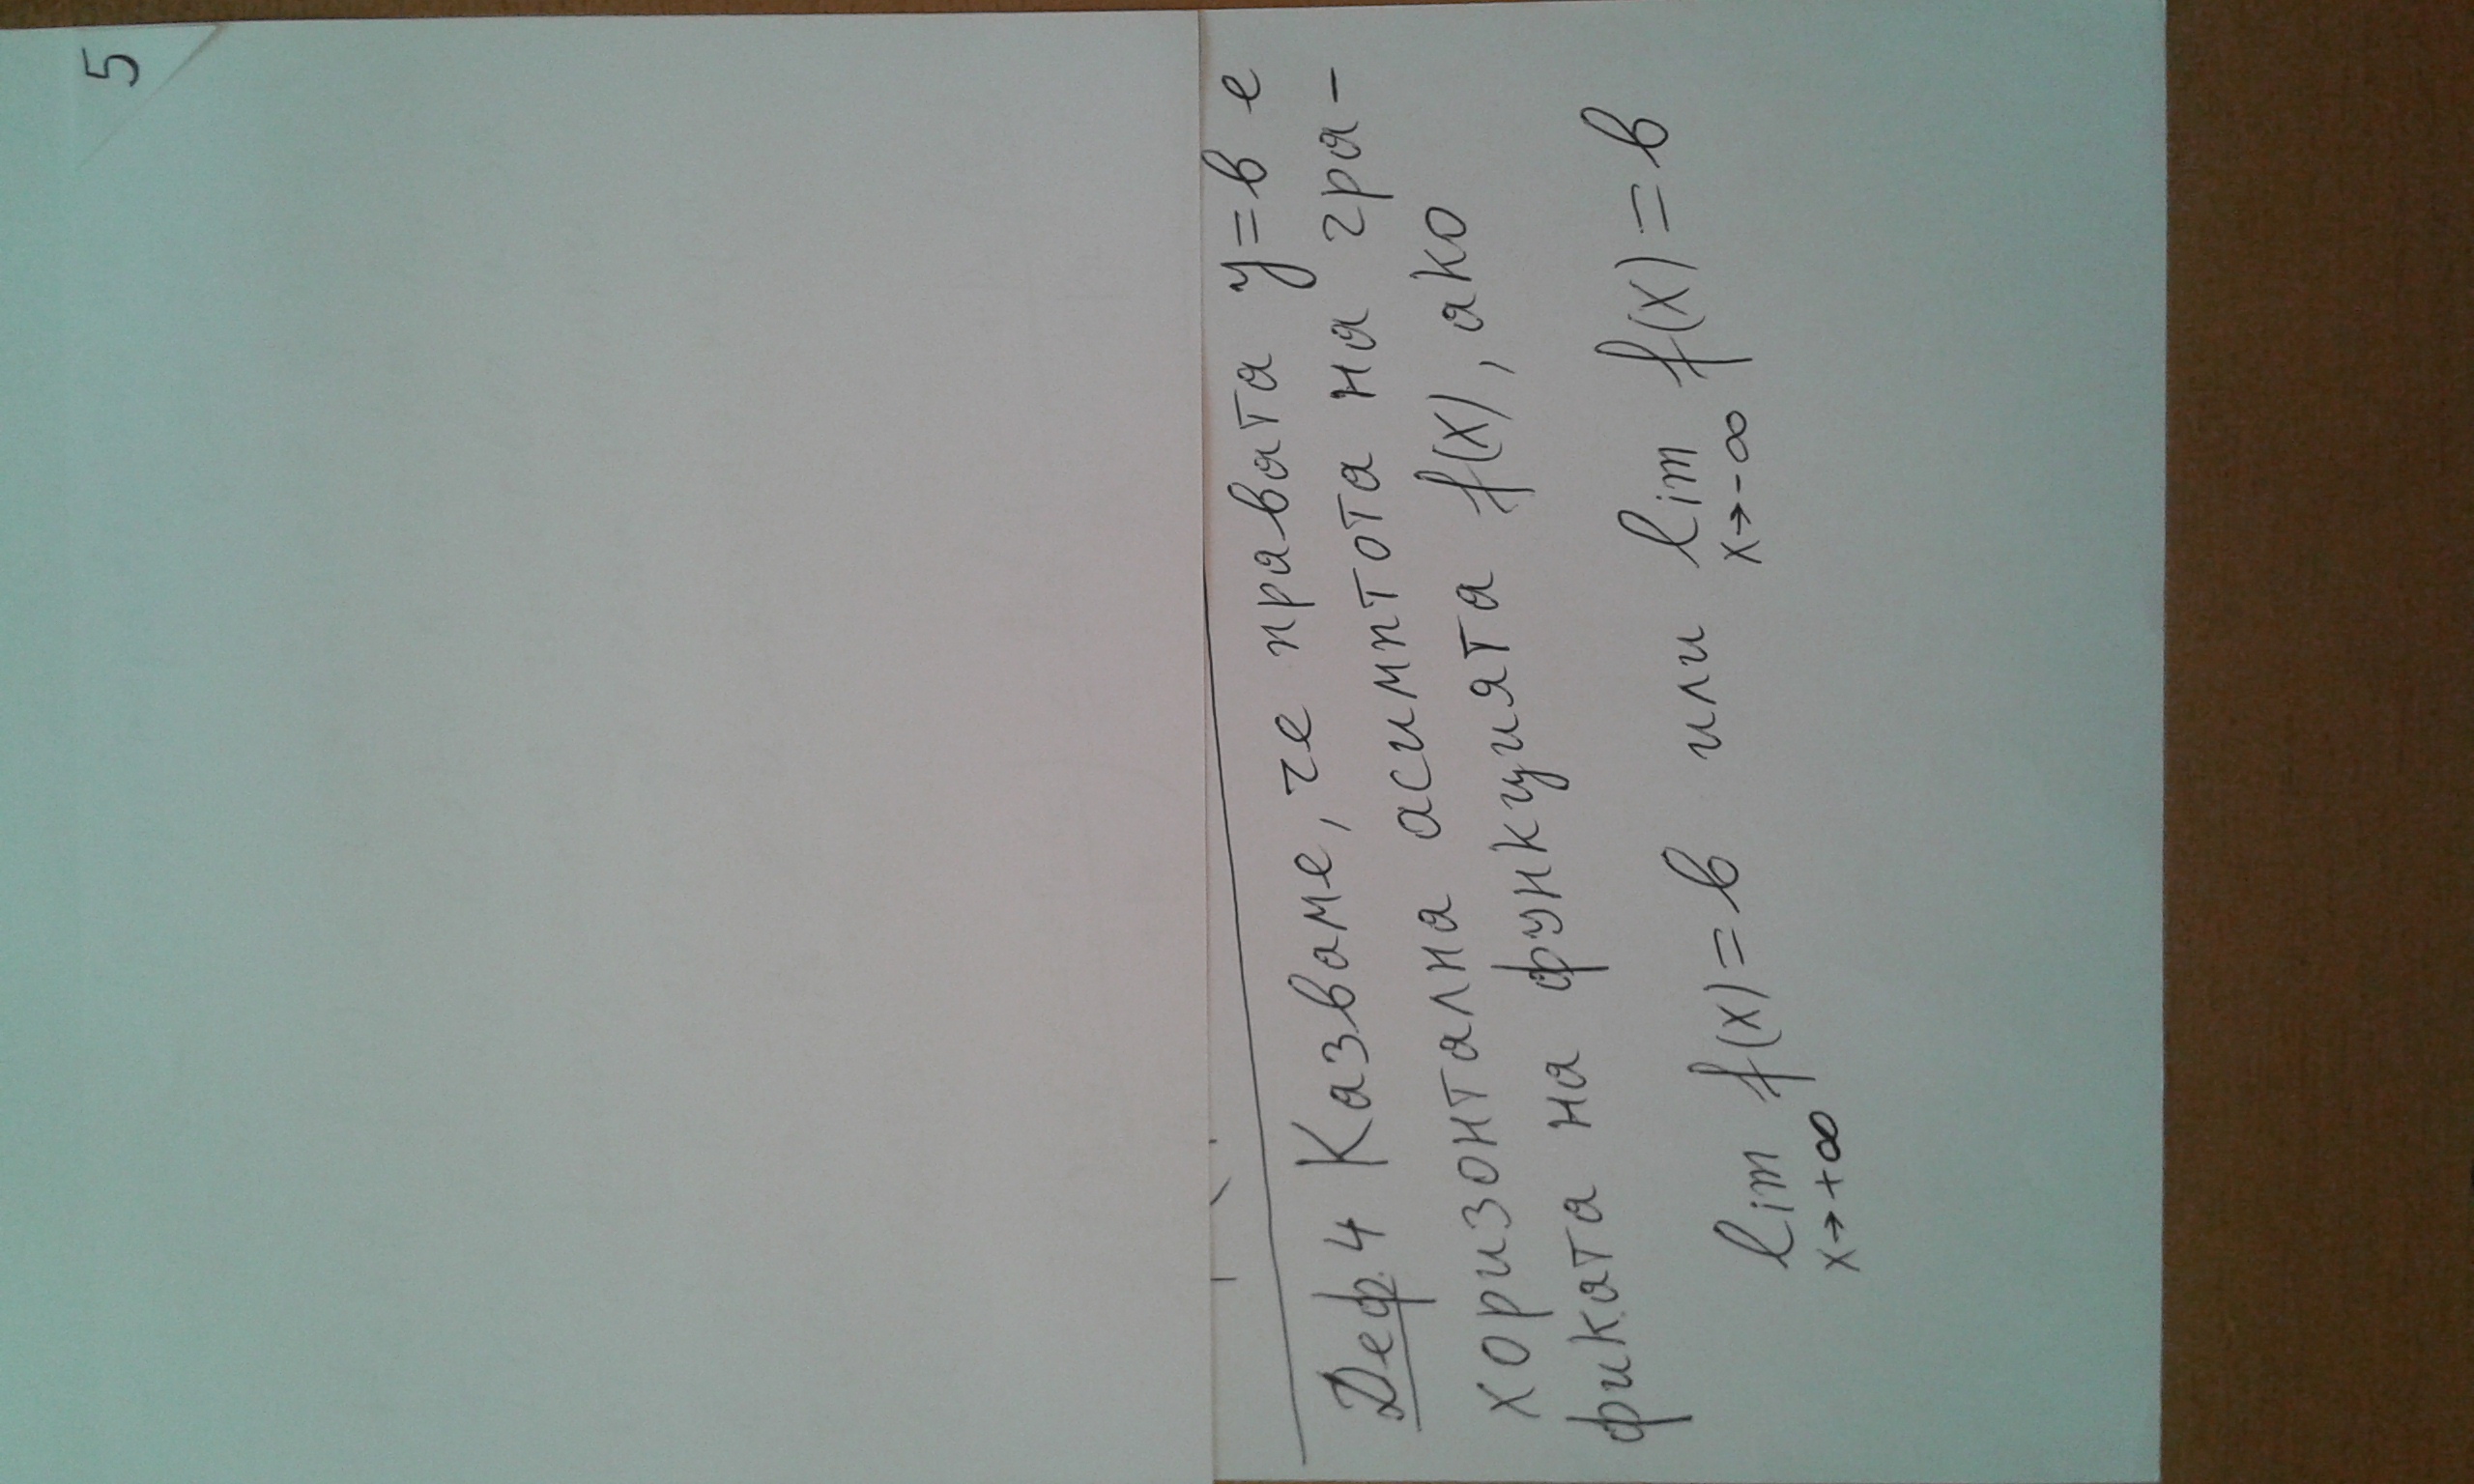 5
Деф. 4 Казваме, че правата y=b е
хоризонтална асимптота на гра-
фиката на функцията f(x), ако
lim f(x)=b или lim f(x)=b
x→+∞ x→-∞